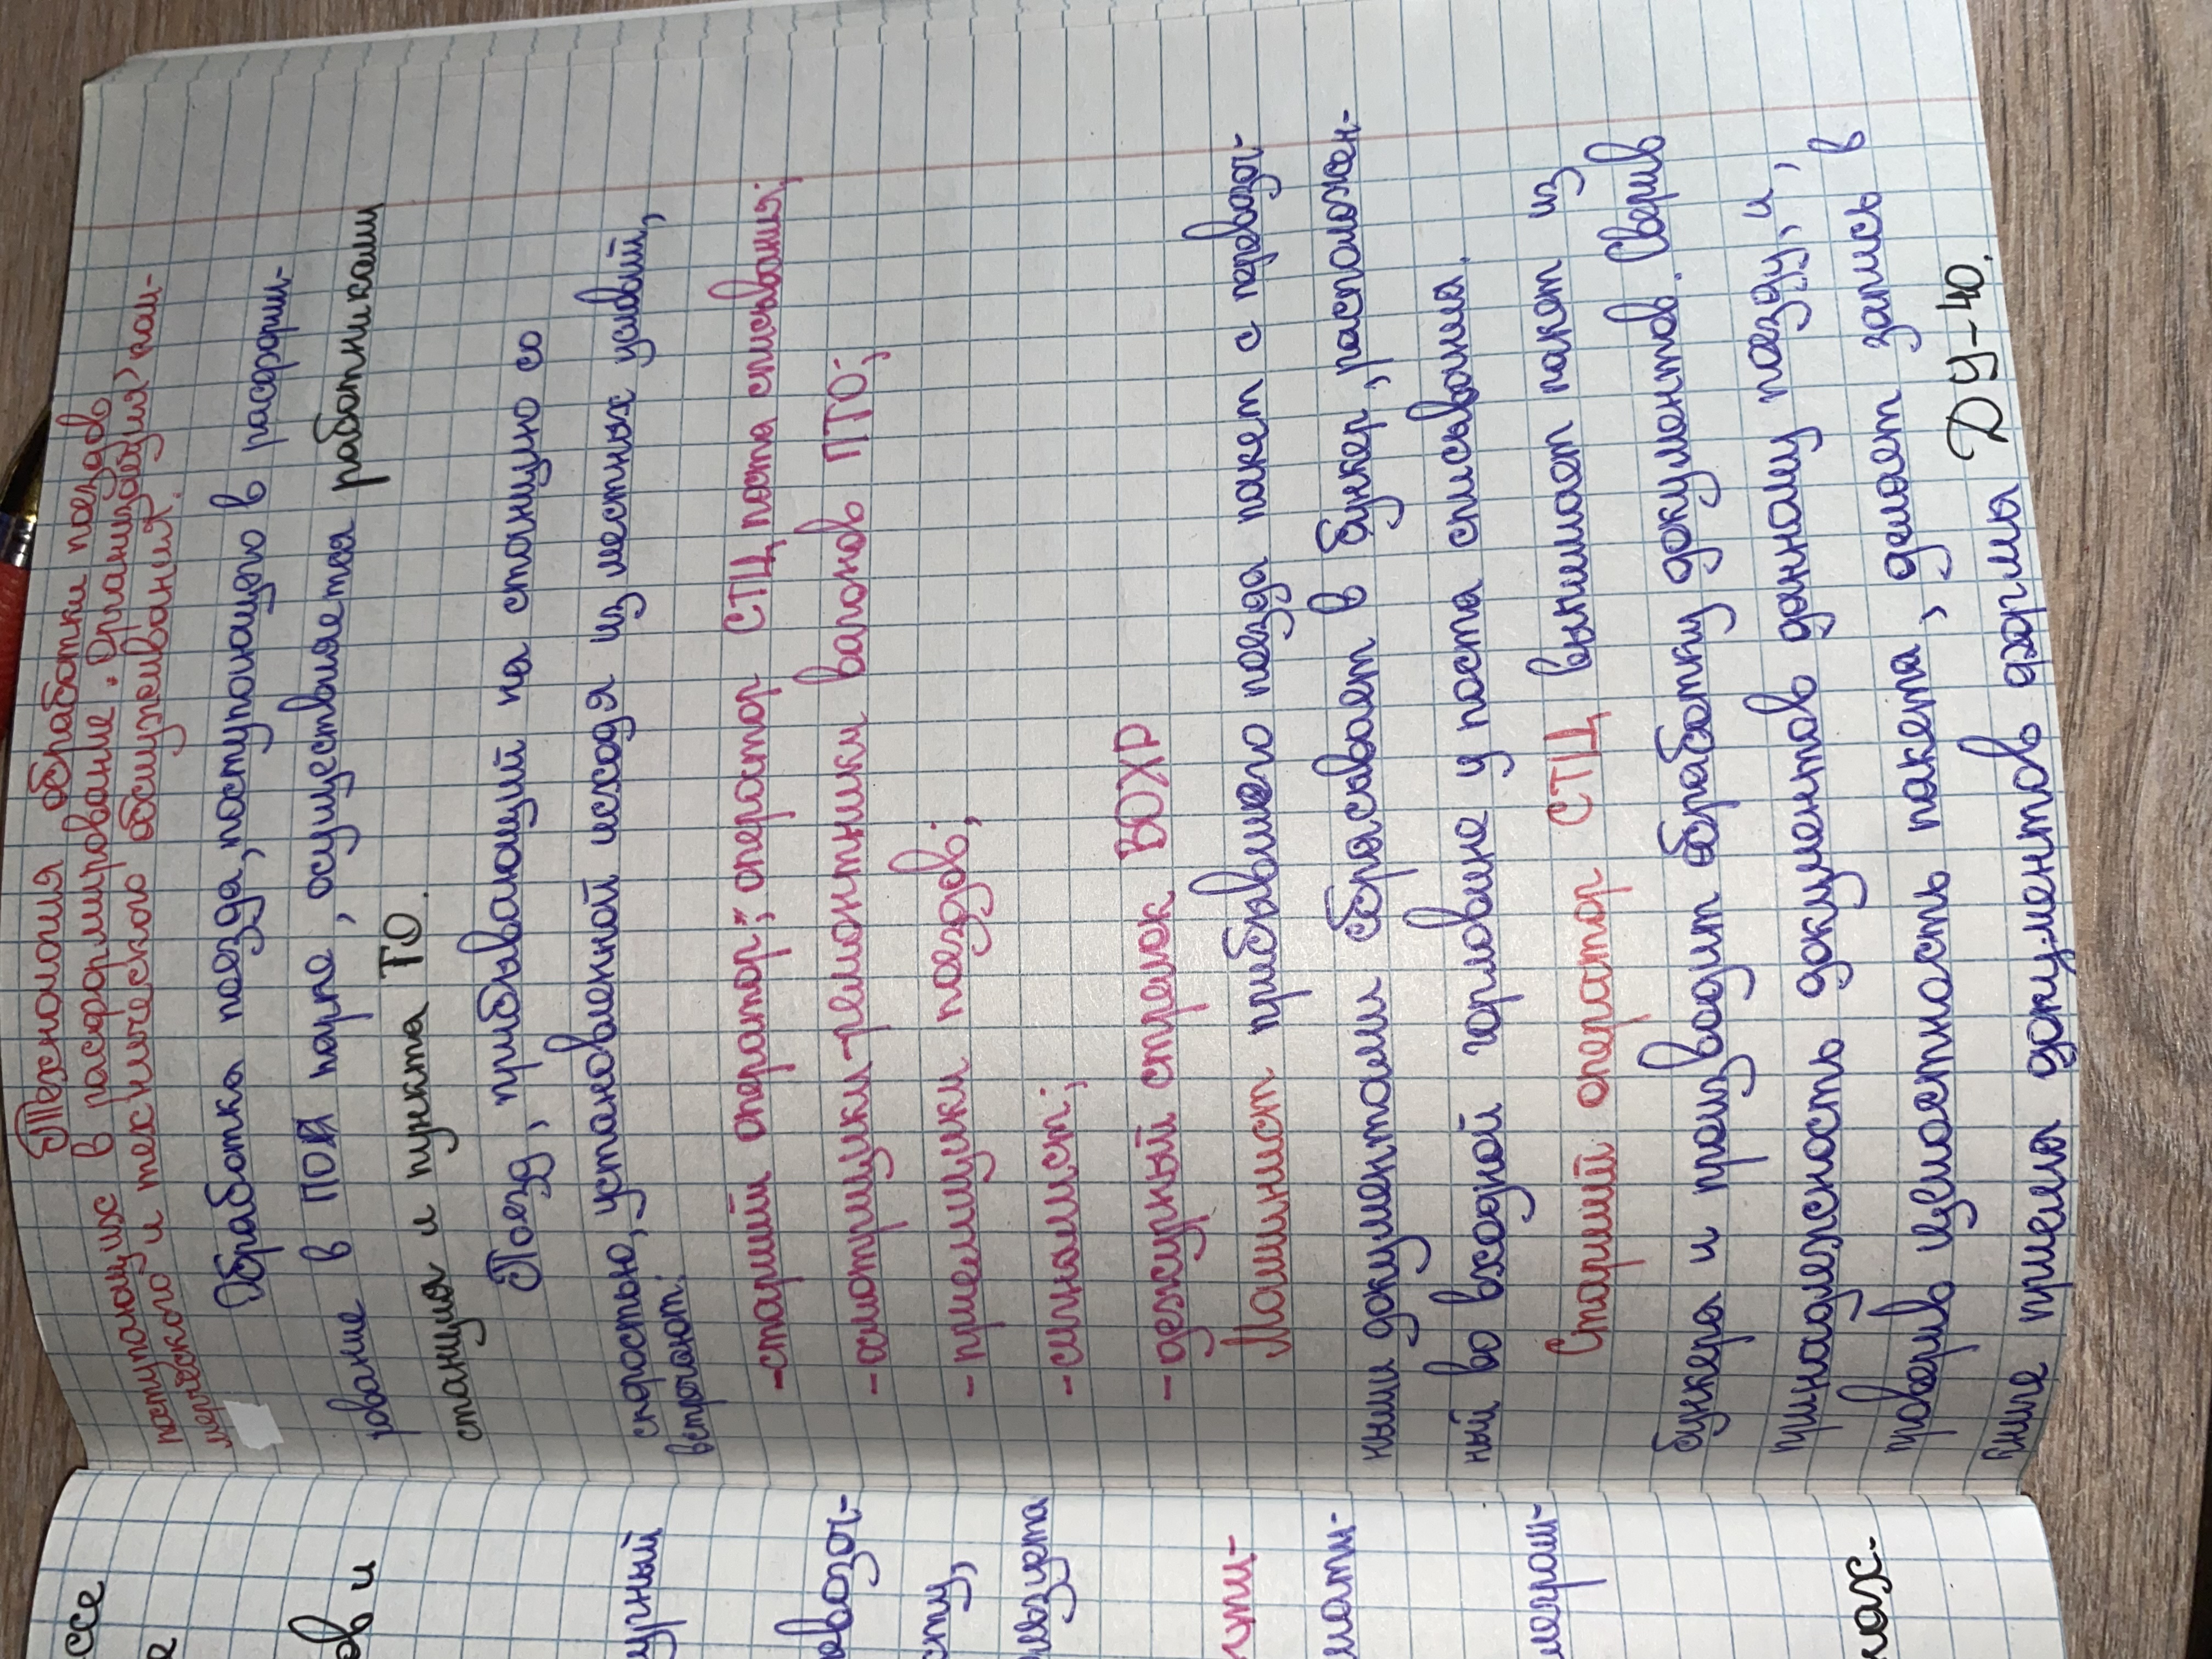 Технология обработки поездов
поступающих в расформирование. Организация ком-
мерческого и технического обслуживания.
Обработка поезда, поступающего в расформи-
рование в ПОП парке, осуществляется работниками
станция и пункта ТО.
Поезд, прибывающий на станцию со
скоростью, установленной исходя из местных условий,
встречают:
-старший оператор; оператор СТЦ поста списывания;
-осмотрщики-ремонтники вагонов ПТО;
-приемщики поездов;
-сигналист;
-дежурный стрелок ВОХР
Машинист прибывшего поезда пакет с перевозоч-
ными документами сбрасывает в бункер, расположен-
ный во входной горловине у поста списывания.
Старший оператор СТЦ вынимает пакет из
бункера и производит обработку документов. Сверив
принадлежность документов данному поезду, и
проверив целостность пакета, делает запись в
книге приема документов формы ДУ-40.
ссе
е
ов и
урный
евозоч-
сту,
нвзцета
мати-
леграм-
лах.